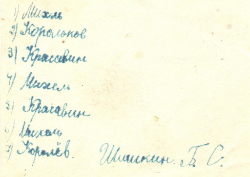 1) Михель
2) Корольков
3) Красавин
4) Михель
5) Красавин
6) Михель
7) Королёв. Ишанкин. Б. С.